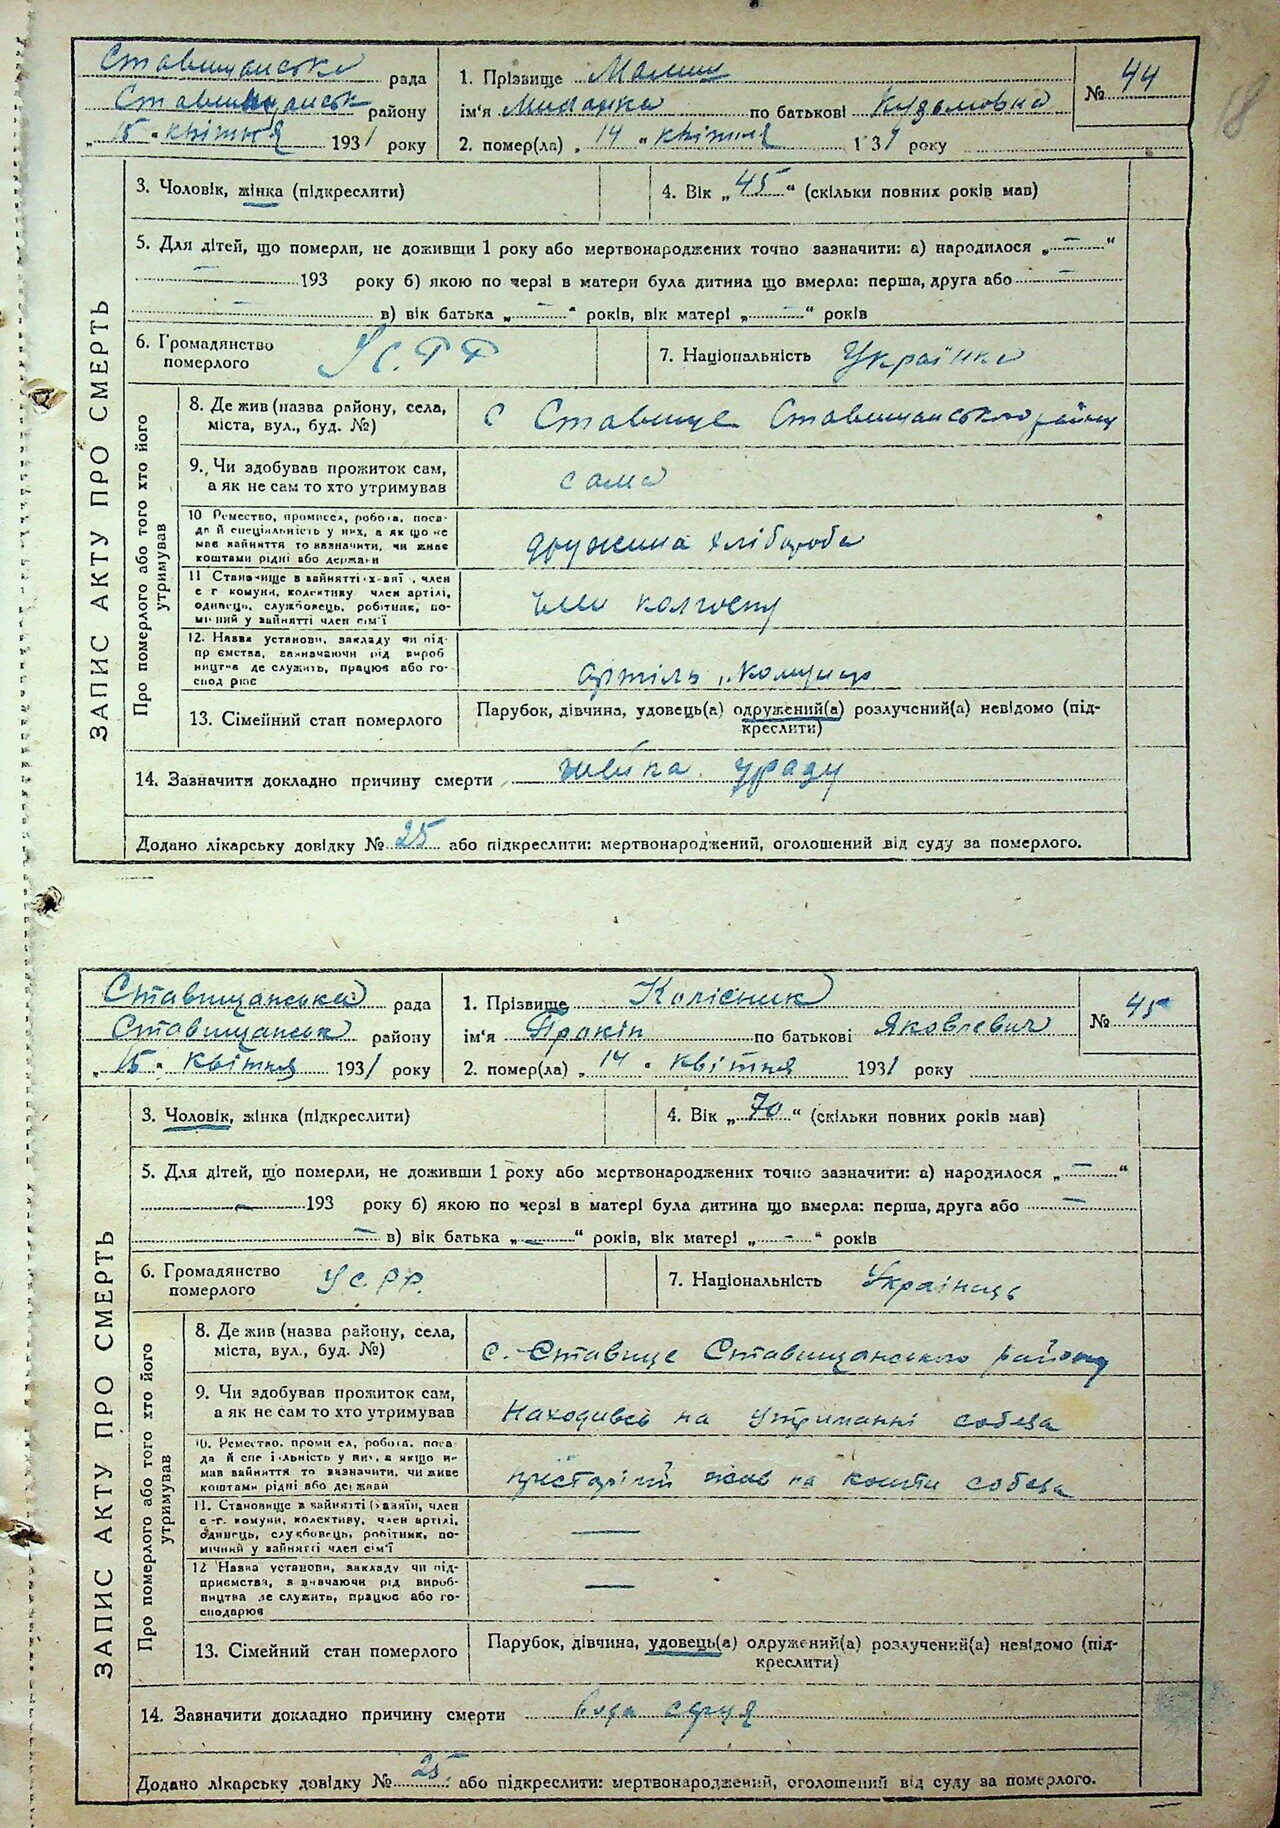 58
Ставищанська рада
Ставищанськ району
„15 " квітня 1931 року
1. Прізвище
ім'я Миланка по батькові Кузьмовна
2. помер(ла) „ 14 " квітня 1931 року
№ 44
ЗАПИС АКТУ ПРО СМЕРТЬ
3. Чоловік, жінка (підкреслити)
4. Вік „ 45 " (скільки повних років мав)
5. Для дітей, що померли, не доживши 1 року або мертвонароджених точно зазначити: а) народилося „ — "
— 193 року б) якою по черзі в матери була дитина що вмерла: перша, друга або —
— в) вік батька „ — " років, вік матері „ — " років
6. Громадянство померлого УСРР
7. Національність Українка
Про померлого або того хто його утримував
8. Де жив (назва району, села, міста, вул., буд. №) с Ставище Ставищанського району
9. Чи здобував прожиток сам, а як не сам то хто утримував сама
10 Ремество, промисел, робота, посада й спеціяльність у них, а як що не має зайняття то зазначити, чи живе коштами рідні або держави дружина хлібороба
11 Становище в зайнятті х-азї, член с г комуни, колективу член артілі, одинець, службовець, робітник, помічний у зайнятті член сім'ї член колгоспу
12. Назва установи, закладу чи підприємства, зазначаючи рід виробництва де служить, працює або господарює артіль „
13. Сімейний стан померлого Парубок, дівчина, удовець(а) одружений(а) розлучений(а) невідомо (підкреслити)
14. Зазначити докладно причину смерти
Додано лікарську довідку № 25 або підкреслити: мертвонароджений, оголошений від суду за померлого.
Ставищанська рада
Ставищанськ району
„ 15 " квітня 1931 року
1. Прізвище Колісник
ім'я по батькові Яковлевич
2. помер(ла) „ 14 " квітня 1931 року
№ 45
ЗАПИС АКТУ ПРО СМЕРТЬ
3. Чоловік, жінка (підкреслити)
4. Вік „ 70 " (скільки повних років мав)
5. Для дітей, що померли, не доживши 1 року або мертвонароджених точно зазначити: а) народилося „ — "
— 193 року б) якою по черзі в матері була дитина що вмерла: перша, друга або —
— в) вік батька „ — " років, вік матері „ - " років
6. Громадянство померлого УСРР.
7. Національність Українець
Про померлого або того хто його утримував
8. Де жив (назва району, села, міста, вул., буд. №) с. Ставище Ставищанського району
9. Чи здобував прожиток сам, а як не сам то хто утримував Находивсь на утриманні собеза
10. Ремество, промисел, робота, посада й спеціальність у них, а якщо не мав зайняття то зазначити, чи живе коштами рідні або держави престарілий жив на кошти собеза
11. Становище в зайнятті (хазяїн, член с-г. комуни, колективу, член артілі, одинець, службовець, робітник, помічний у зайнятті член сім'ї —
12 Назва установи, закладу чи підприємства, зазначаючи рід виробництва де служить, працює або господарює —
13. Сімейний стан померлого Парубок, дівчина, удовець(а) одружений(а) розлучений(а) невідомо (підкреслити)
14. Зазначити докладно причину смерти серця
Додано лікарську довідку № 25 або підкреслити: мертвонароджений, оголошений від суду за померлого.